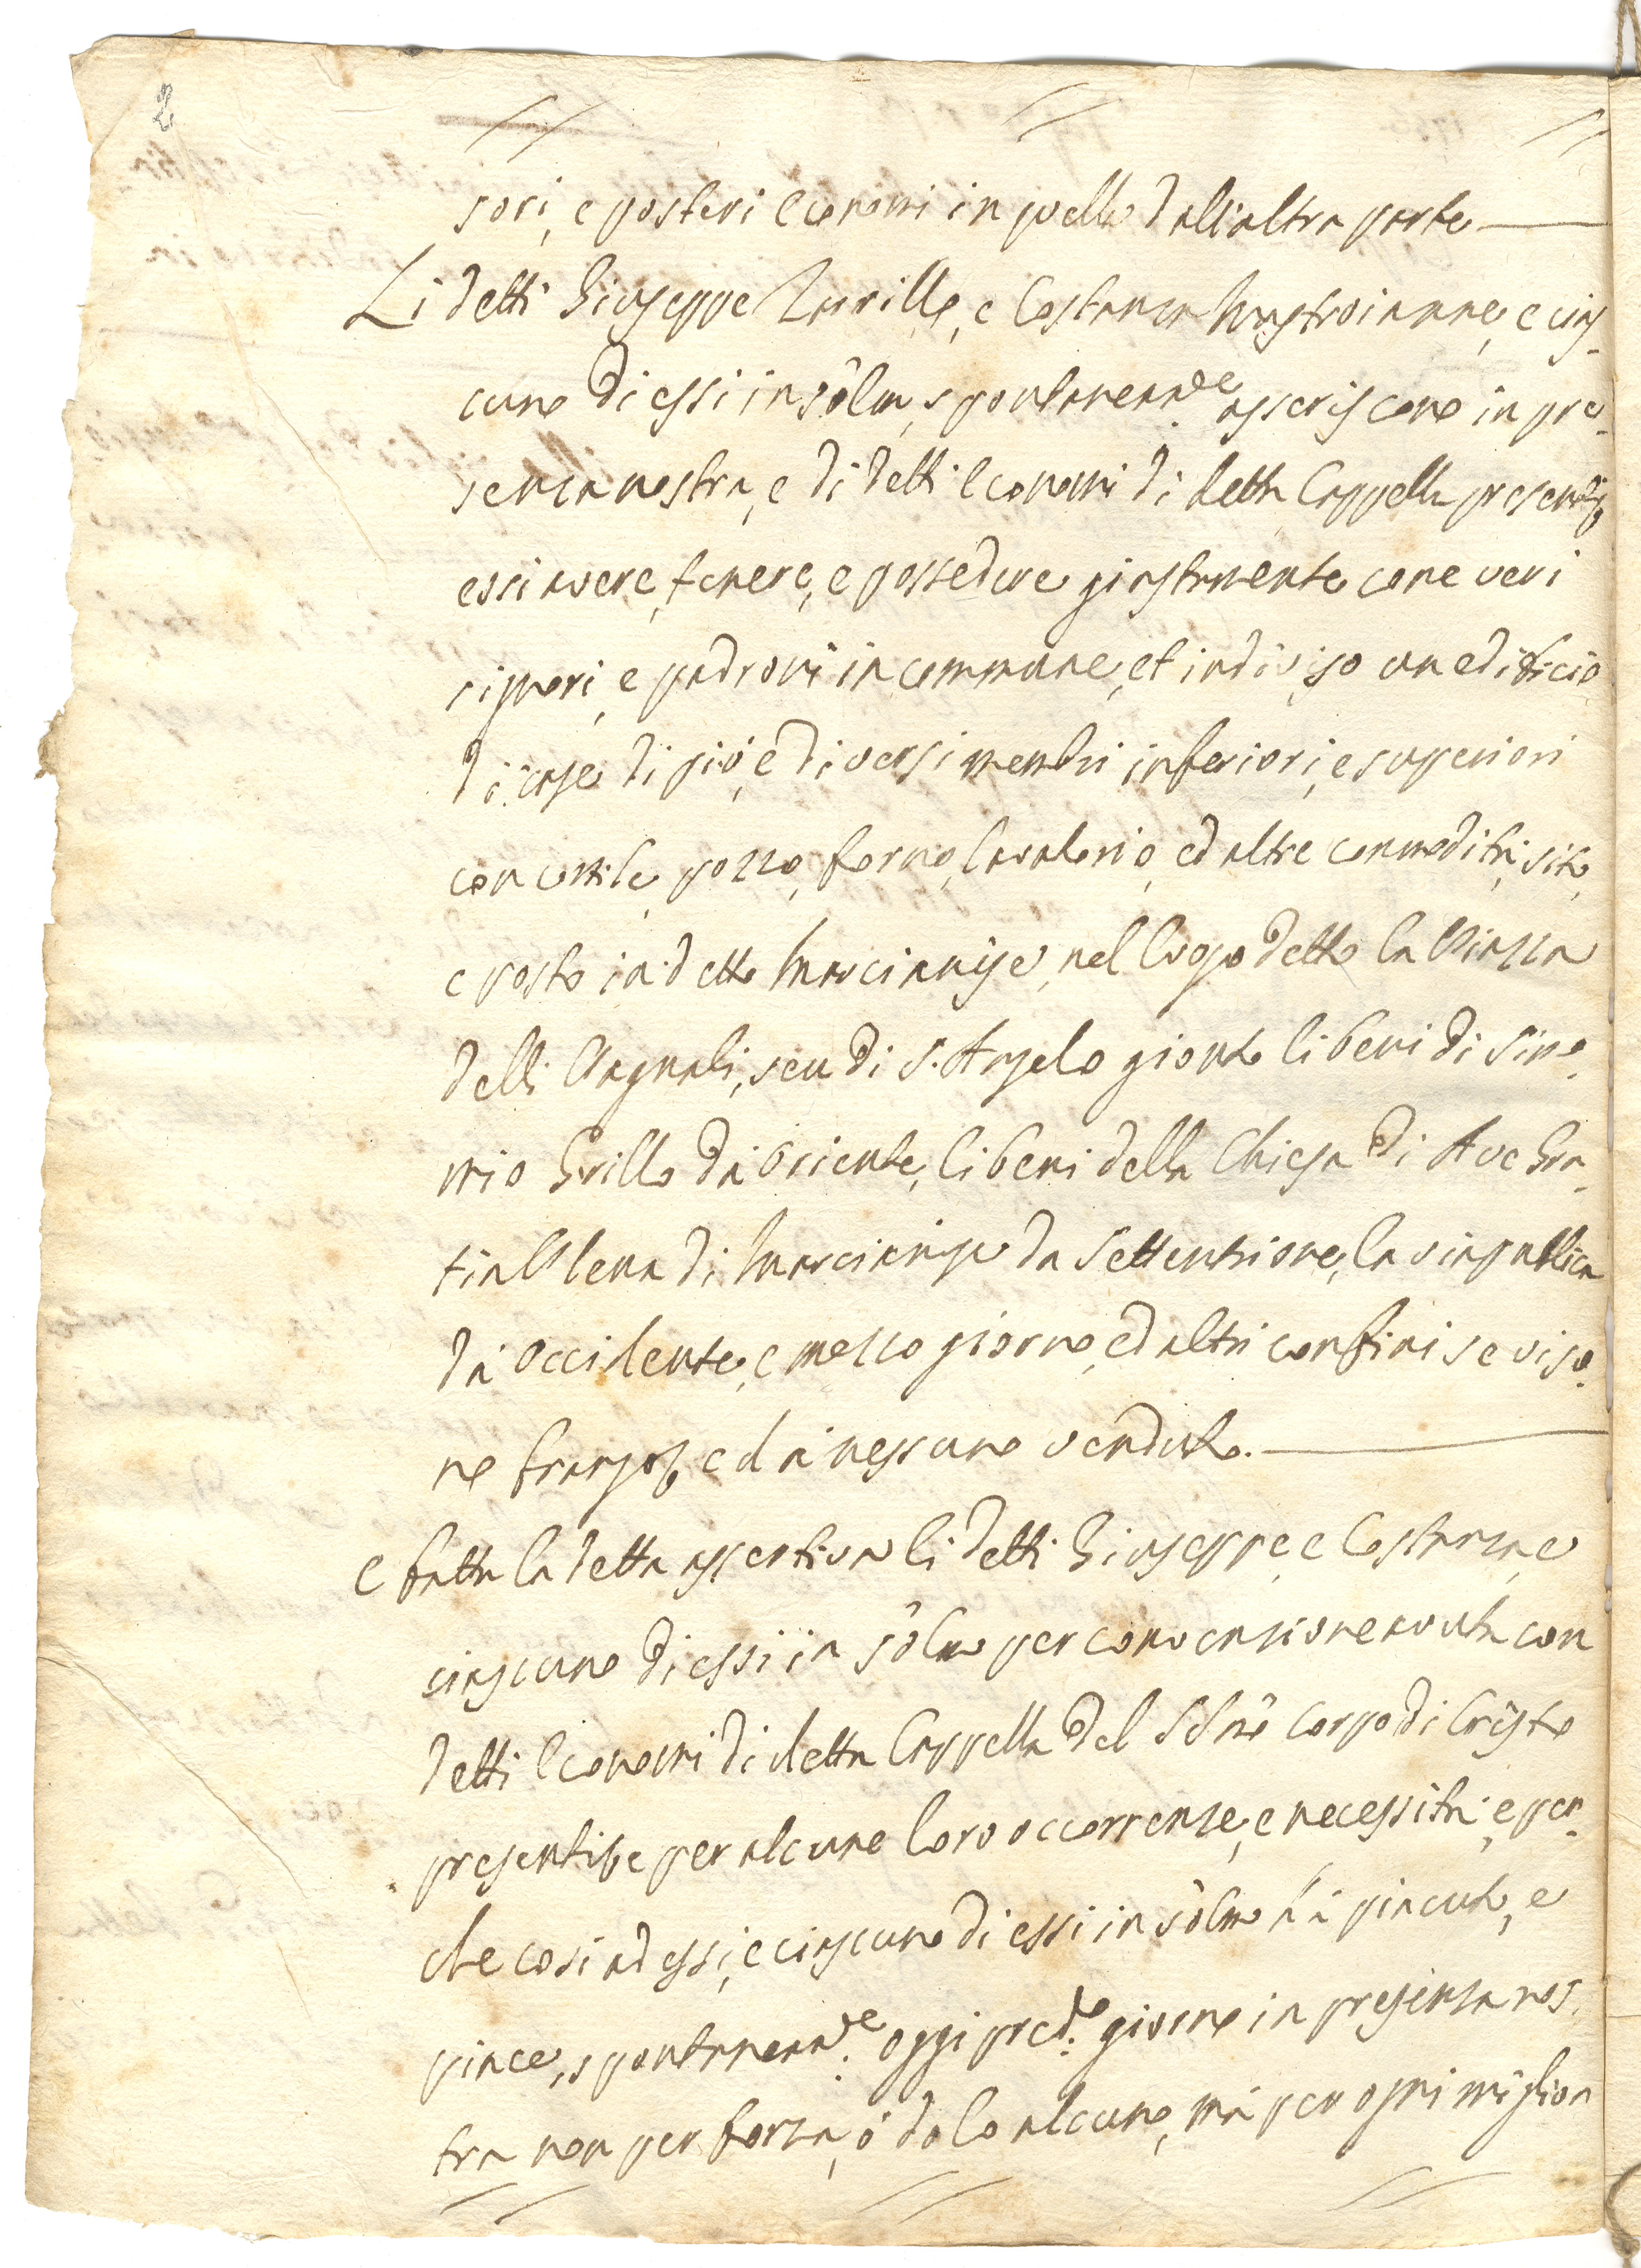 2
sori, e posteri Economi in quella dall'altra parte
Li detti Giuseppe Zarrillo, e Costanza Mastroianne, e cias-
cuno di essi in solm, spontaneam.te asseriscono in pre-
senza nostra, e di detti Economi di detta Cappella presenti
essi avere, tenere, e possedere giustamente come veri
signori, e padroni in commune, et indiviso un edificio
di case di più, e diversi membri inferiori, e superiori
con cortile, pozzo, forno, lavatorio, ed altre commodità, sito,
e posto in detto Marcianise, nel luogo detto la Piazza
delli Pagnali, seu di S. Angelo gionto li beni di Simo-
nio Grillo da Oriente, li beni della Chiesa di Ave Gra-
tia Plena di Marcianise da Settentrione, la via publica
dà Occidente, e mezzo giorno, ed altri confini se viso-
no franco, ed à nessuno venduto.
E fatta la detta assertiva li detti Giuseppe, e Costanza, e
ciascuno di essi in solm per convenzione avuta con
detti Economi di detta Cappella del SS.mo Corpo di Cristo
presentibe per alcune loro occorrenze, e necessità, e per-
che così ad essi, e ciascuno di essi in solm hà piaciuto, e
piace, spontaneam.te oggi pred.to giorno in presenza nos-
tra non per forza, ò dolo alcuno, mà per ogni miglior